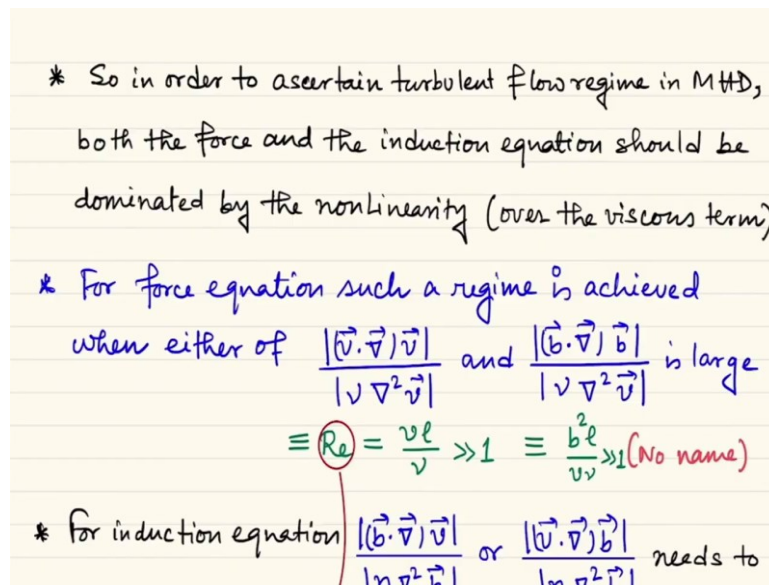 * So in order to ascertain turbulent flow regime in MHD,
both the force and the induction equation should be
dominated by the nonlinearity (over the viscous term)
* For force equation such a regime is achieved
when either of |(v⃗.∇⃗)v⃗| / |ν∇²v⃗| and |(b⃗.∇⃗)b⃗| / |ν∇²v⃗| is large
≡ Re = vℓ/ν >>1 ≡ b²ℓ/vν >>1 (No name)
* For induction equation |(b⃗.∇⃗)v⃗| / |η∇²b⃗| or |(v⃗.∇⃗)b⃗| / |η∇²b⃗| needs to